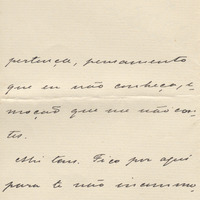 pertença, pensamento
que eu não conheça, e
moção que me não con-
tes.
Até logo. Fico por aqui
para te não incommo